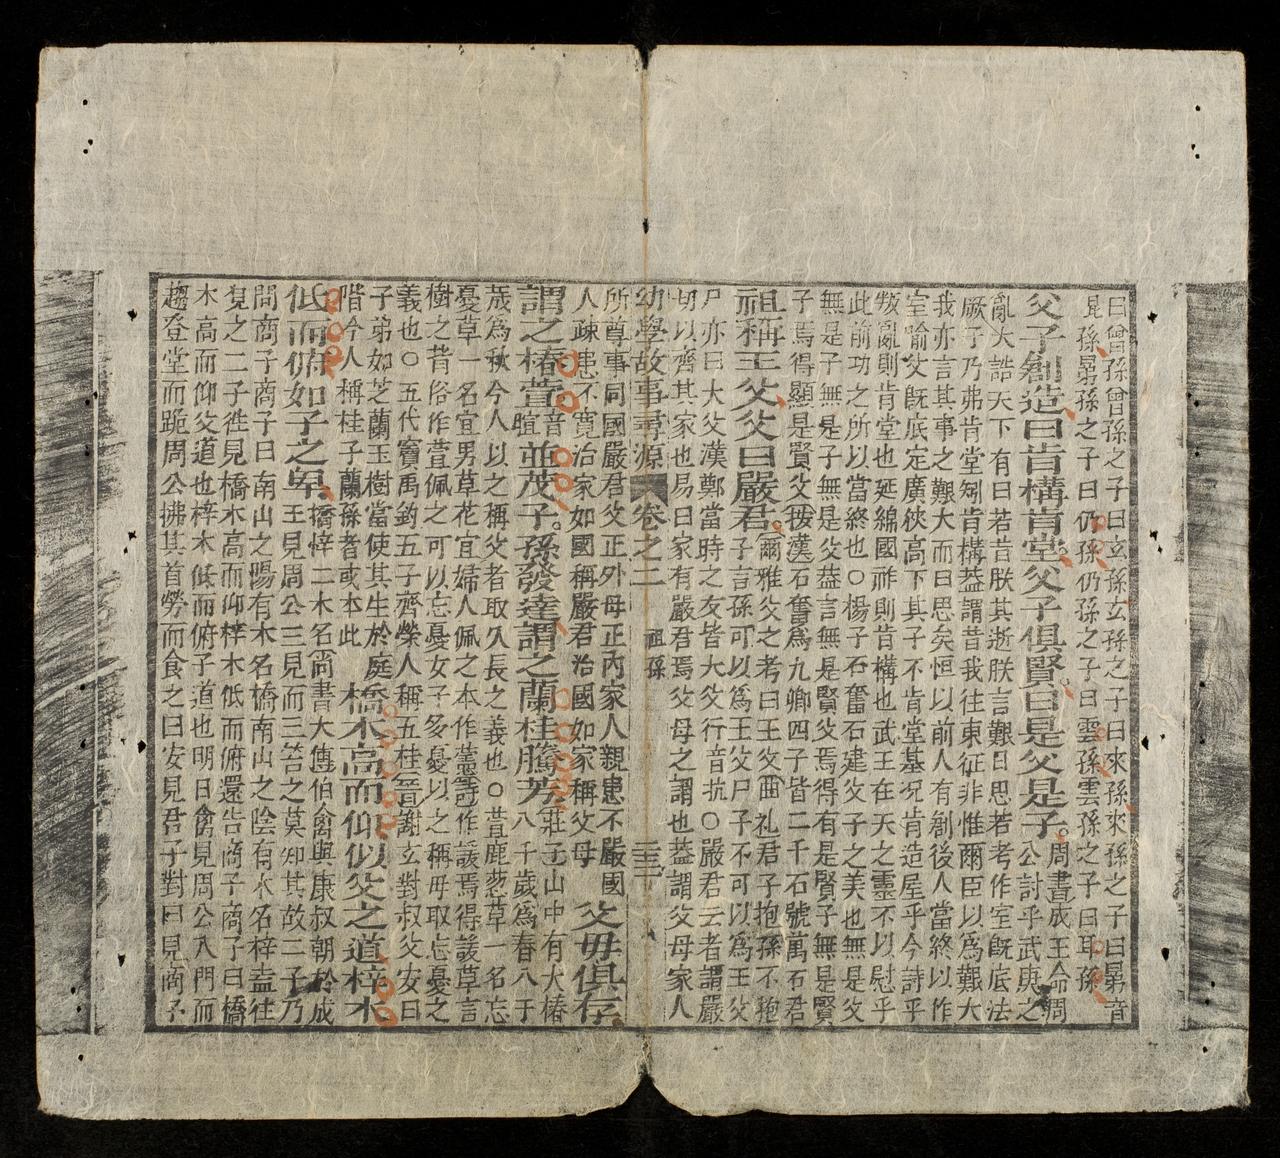 曰曾孫曾孫之子曰玄孫玄孫之子曰來孫來孫之子曰晜音
昆孫晜孫之子曰仍孫仍孫之子曰雲孫雲孫之子曰耳孫
父子創造曰肯構肯堂父子俱賢曰是父是子周書成王命周
公討乎武庚之
亂大誥天下有曰若昔朕其逝朕言艱日思若考作室既底法
厥子乃弗肯堂矧肯構益謂昔我往東征非惟爾臣以為艱大
我亦言其事之艱大而曰思矣恒以前人有創後人當終以作
室喻父既底定廣狹高下其子不肯堂基況肯造屋乎今詩乎
叛亂則肯堂也延綿國祚則肯構也武王在天之靈不以慰乎
此前功之所以當終也○楊子石奮石建父子之美也無是父
無是子無是子無是父益言無是賢父焉得有是賢子無是賢
子焉得顯是賢父㧞漢石奮為九卿四子皆二千石號萬石君
祖稱王父父曰嚴君爾雅父之考曰王父曲禮君子抱孫不抱
子言孫可以為王父尸子不可以為王父
尸亦曰大父漢鄭當時之友皆大父行音抗○嚴君云者謂嚴
切以齊其家也易曰家有嚴君焉父母之謂也益謂父母家人
幼學故事尋源 卷之二 祖孫 三三
所尊事同國嚴君父正外母正內家人親患不嚴國
人疎患不寬治家如國稱嚴君治國如家稱父母 父母俱存
謂之椿萱音暄並茂子孫發達謂之蘭桂騰芳莊子山中有大椿
八千歲為春八千
歲為秋今人以之稱父者取久長之義也○萓鹿葱草一名忘
憂草一名宜男草花宜婦人佩之本作蕿詩作諼焉得諼草言
樹之昔俗作萱佩之可以忘憂女子多憂以之稱毋取忘憂之
義也○五代竇禹鈞五子齊榮人稱五桂晉謝玄對叔父安曰
子弟如芝蘭玉樹當使其生於庭
階今人稱桂子蘭孫者或本此 橋木高而仰似父之道梓木
低而俯如子之卑橋梓二木名尚書大傳伯禽與康叔朝於成
王見周公三見而三笞之莫知其故二子乃
問商子商子曰南山之陽有木名橋南山之陰有木名梓盍往
覓之二子徃見橋木高而仰梓木低而俯還告商子商子曰橋
木高而仰父道也梓木低而俯子道也明日禽見周公入門而
趨登堂而跪周公拂其首勞而食之曰安見君子對曰見商子